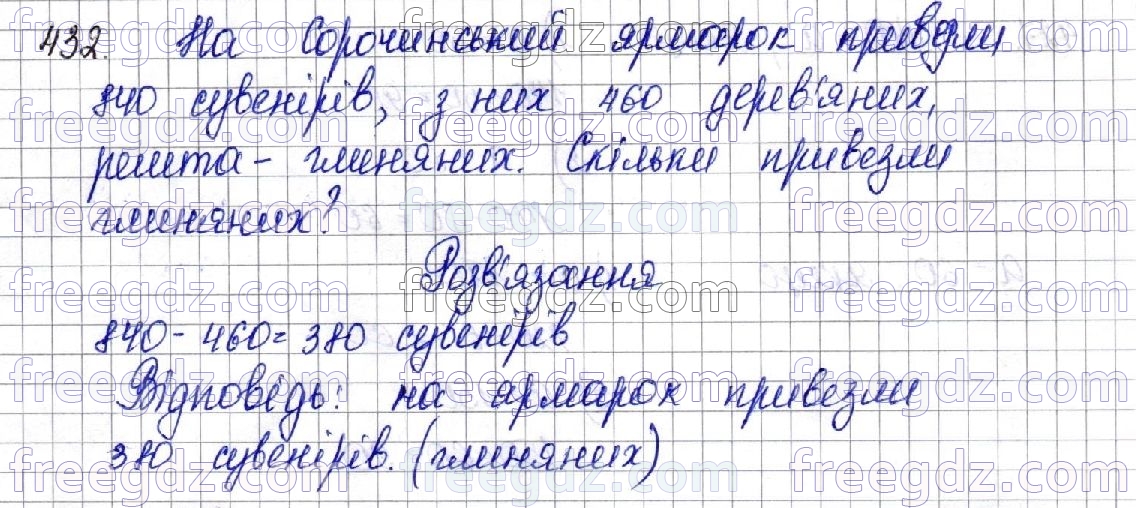 432. На Сорочинський ярмарок привезли
840 сувенірів, з них 460 дерев'яних,
решта - глиняних. Скільки привезли
глиняних?
Розв'язання
840 - 460 = 380 сувенірів
Відповідь: на ярмарок привезли
380 сувенірів. (глиняних)
freegdz.com